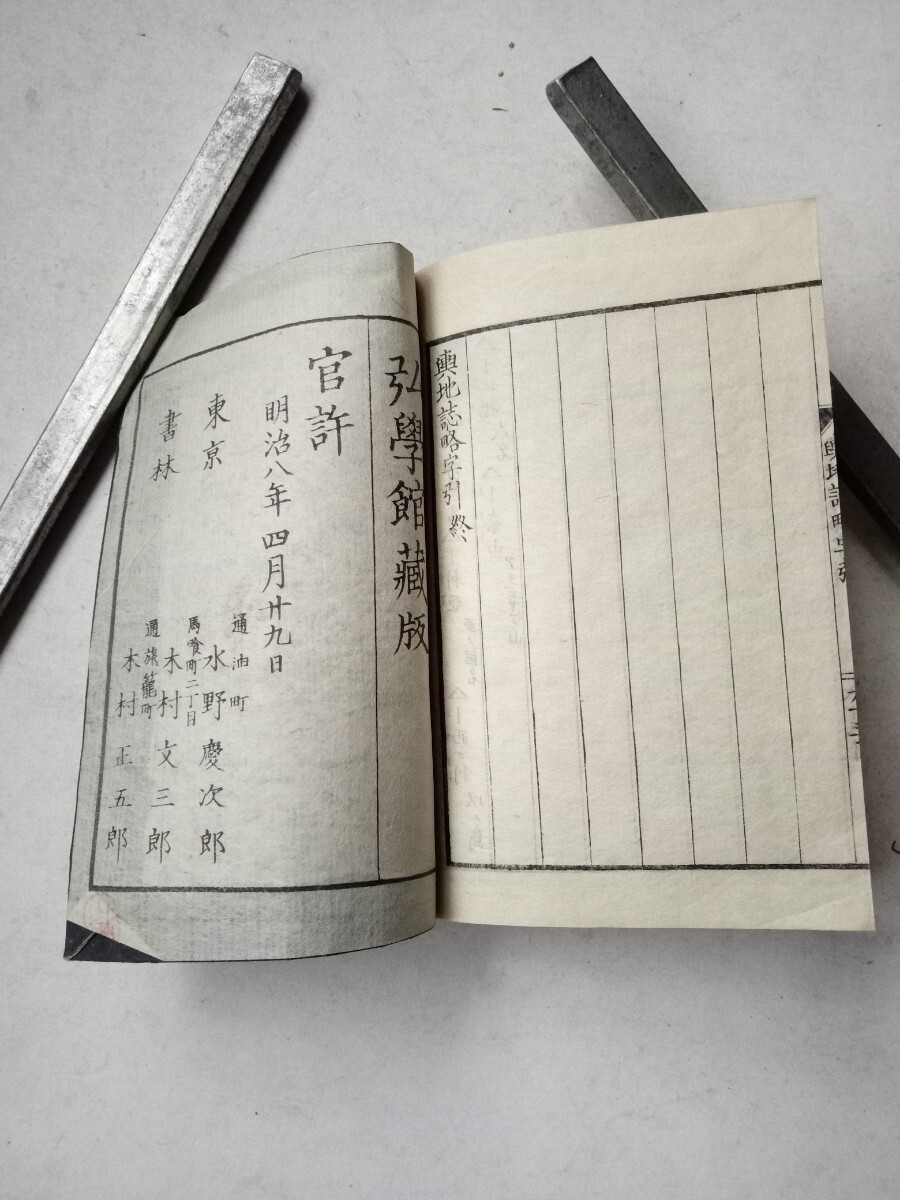 輿地誌略字引終
弘學館藏版
官許
明治八年四月廿九日
東京
書林
通油町
水野慶次郎
馬喰町二丁目
木村文三郎
通旅籠町
木村正五郎
輿地誌略字引